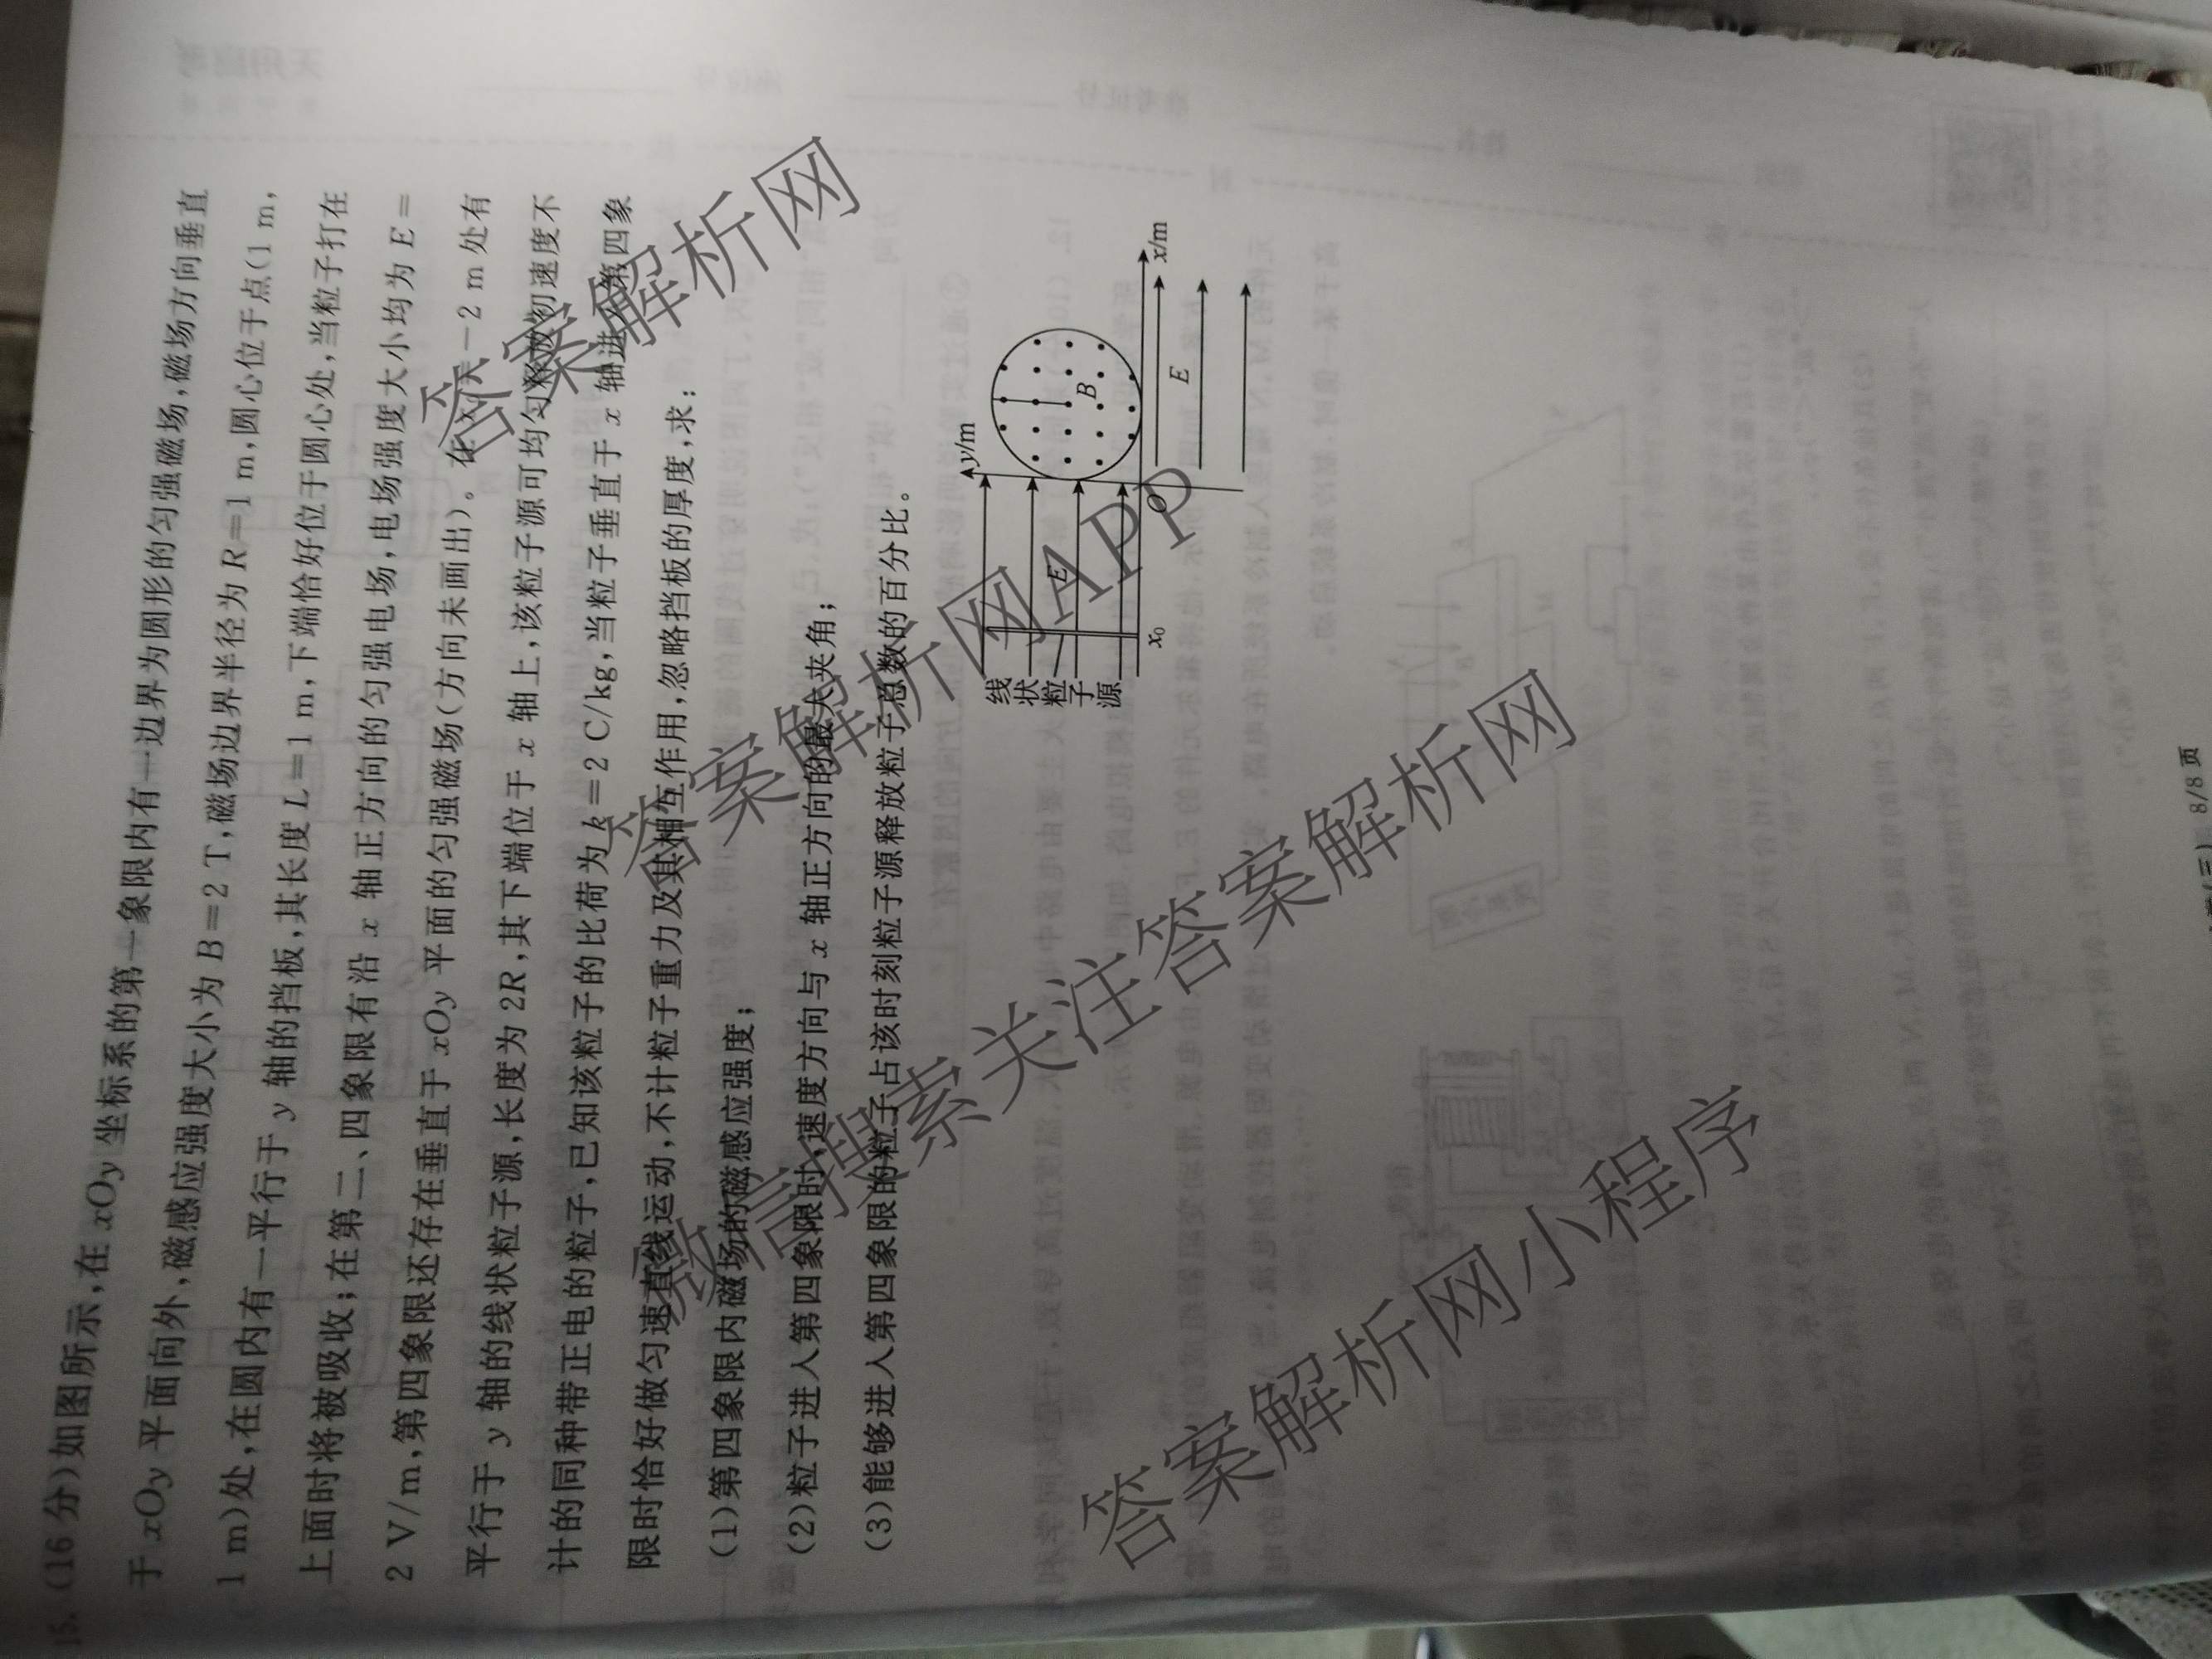 15.(16 分)如图所示,在 xOy 坐标系的第一象限内有一边界为圆形的匀强磁场,磁场方向垂直
于 xOy 平面向外,磁感应强度大小为 B=2 T,磁场边界半径为 R=1 m,圆心位于点(1 m,
1 m)处,在圆内有一平行于 y 轴的挡板,其长度 L=1 m,下端恰好位于圆心处,当粒子打在
上面时将被吸收;在第二、四象限有沿 x 轴正方向的匀强电场,电场强度大小均为 E=
2 V/m,第四象限还存在垂直于 xOy 平面的匀强磁场(方向未画出)。在 x₀=-2 m 处有
平行于 y 轴的线状粒子源,长度为 2R,其下端位于 x 轴上,该粒子源可均匀释放初速度不
计的同种带正电的粒子,已知该粒子的比荷为 k=2 C/kg,当粒子垂直于 x 轴进入第四象
限时恰好做匀速直线运动,不计粒子重力及其相互作用,忽略挡板的厚度,求:
(1)第四象限内磁场的磁感应强度;
(2)粒子进入第四象限时,速度方向与 x 轴正方向的最大夹角;
(3)能够进入第四象限的粒子占该时刻粒子源释放粒子总数的百分比。
y/m
线状粒子源
E
B
x₀
O
x/m
E
8/8 页
答案解析网
答案解析网APP
微信搜索关注答案解析网
答案解析网小程序